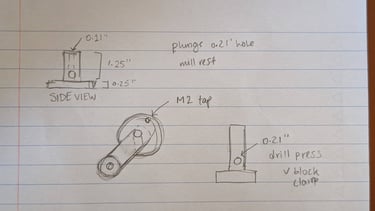 0.21"
plunge 0.21" hole
mill rest
1.25"
0.25"
SIDE VIEW
M2 tap
0.21"
drill press
V block
clamp